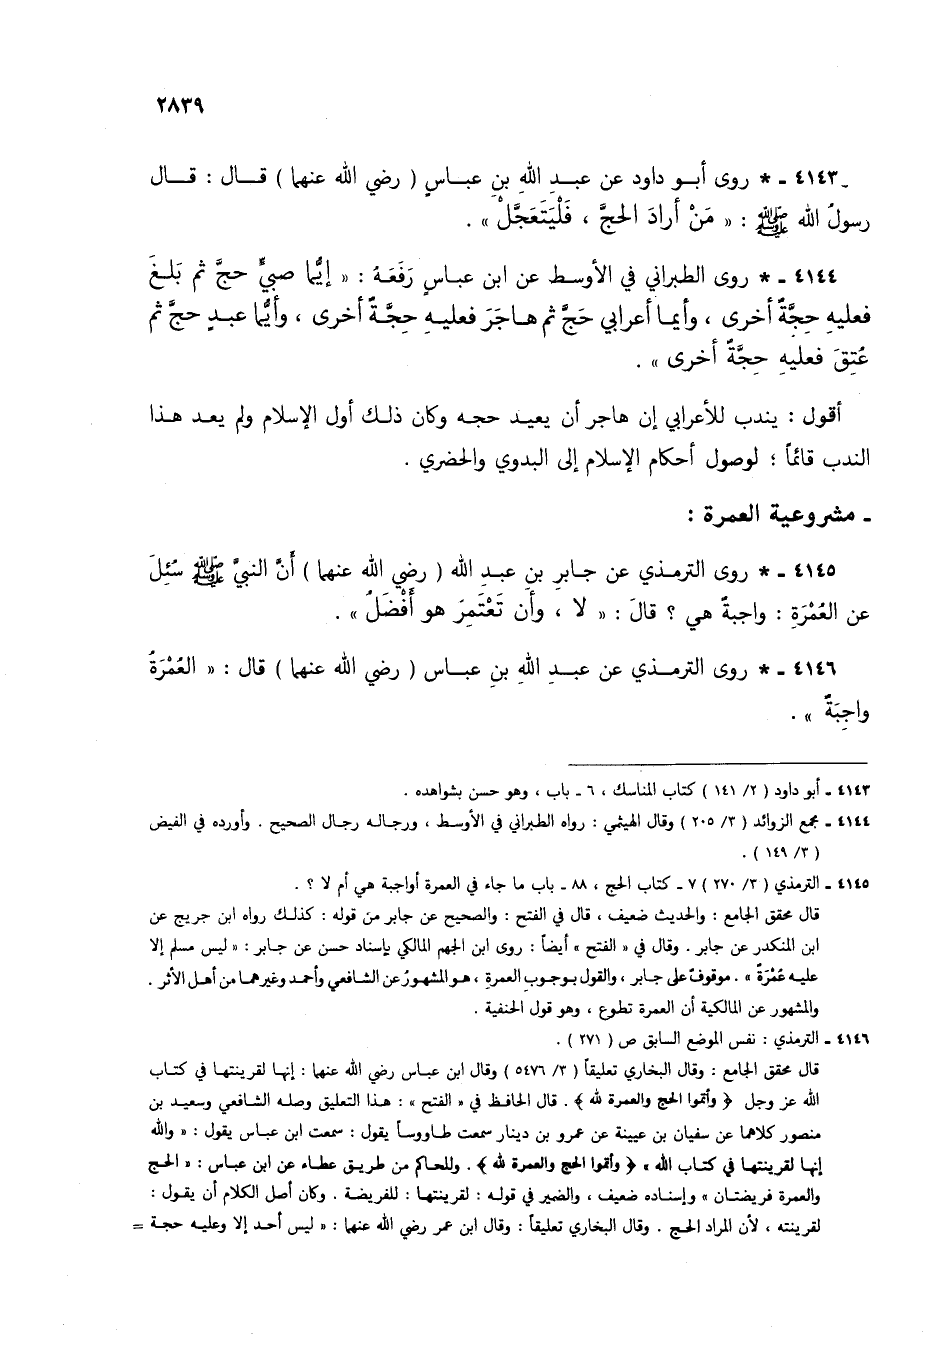 ٢٨٣٩
٤١٤٣ ـ * روى أبـو داود عن عبـدِ اللهِ بنِ عبـاسٍ ( رضي الله عنهما ) قـال : قـال
رسولُ الله ﷺ : « مَنْ أرادَ الحجَّ ، فَلْيَتَعَجَّلْ » .
٤١٤٤ ـ * روى الطبراني في الأوسط عن ابن عباسٍ رَفَعَهُ : « إيُّما صبيٍّ حجَّ ثم بَلغَ
فعليهِ حِجَّةٌ أخرى ، وأيما أعرابي حَجَّ ثم هاجَرَ فعليهِ حِجَّةٌ أخرى ، وأيُّما عبدٍ حجَّ ثم
عُتِقَ فعليهِ حِجَّةٌ أخرى » .
أقول : يندب للأعرابي إن هاجر أن يعيد حجه وكان ذلك أول الإسلام ولم يعد هذا
الندب قائماً ؛ لوصول أحكام الإسلام إلى البدوي والحضري .
ـ مشروعية العمرة :
٤١٤٥ ـ * روى الترمذي عن جابرِ بنِ عبدِ الله ( رضي الله عنهما ) أنَّ النبيَّ ﷺ سُئِلَ
عن العُمْرَةِ : واجبةٌ هي ؟ قالَ : « لا ، وأن تَعْتَمِرَ هو أَفْضَلُ » .
٤١٤٦ ـ * روى الترمـذي عن عبـدِ اللهِ بنِ عبـاس ( رضي الله عنهما ) قال : « العُمْرَةُ
واجِبَةٌ » .
٤١٤٣ ـ أبو داود ( ٢/ ١٤١ ) كتاب المناسك ، ٦ ـ باب ، وهو حسن بشواهده .
٤١٤٤ ـ مجمع الزوائد ( ٣/ ٢٠٥ ) وقال الهيثمي : رواه الطبراني في الأوسط ، ورجاله رجال الصحيح . وأورده في الفيض
( ٣/ ١٤٩ ) .
٤١٤٥ ـ الترمذي ( ٣/ ٢٧٠ ) ٧ ـ كتاب الحج ، ٨٨ ـ باب ما جاء في العمرة أواجبة هي أم لا ؟ .
قال محقق الجامع : والحديث ضعيف ، قال في الفتح : والصحيح عن جابر من قوله : كذلك رواه ابن جريج عن
ابن المنكدر عن جابر . وقال في « الفتح » أيضاً : روى ابن الجهم المالكي بإسناد حسن عن جابر : « ليس مسلم إلا
عليه عُمْرَةٌ » . موقوف على جابر ، والقول بوجوب العمرة ، هو المشهورُ عن الشافعي وأحمد وغيرهما من أهل الأثر .
والمشهور عن المالكية أن العمرة تطوع ، وهو قول الحنفية .
٤١٤٦ ـ الترمذي : نفس الموضع السابق ص ( ٢٧١ ) .
قال محقق الجامع : وقال البخاري تعليقاً ( ٣/ ٥٤٧٦ ) وقال ابن عباس رضي الله عنهما : إنها لقرينتها في كتاب
الله عز وجل ﴿ وأتموا الحج والعمرة لله ﴾ . قال الحافظ في « الفتح » : هذا التعليق وصله الشافعي وسعيد بن
منصور كلاهما عن سفيان بن عيينة عن عمرو بن دينار سمعت طاووساً يقول : سمعت ابن عباس يقول : « والله
إنها لقرينتها في كتاب الله » ﴿ وأتموا الحج والعمرة لله ﴾ . وللحاكم من طريق عطاء عن ابن عباس : « الحج
والعمرة فريضتان » وإسناده ضعيف ، والضمير في قوله : لقرينتها : للفريضة . وكان أصل الكلام أن يقول :
لقرينته ، لأن المراد الحج . وقال البخاري تعليقاً : وقال ابن عمر رضي الله عنهما : « ليس أحد إلا وعليه حجة =